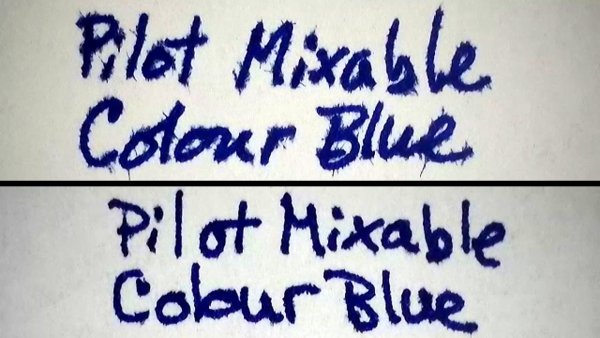 Pilot Mixable
Colour Blue
Pilot Mixable
Colour Blue